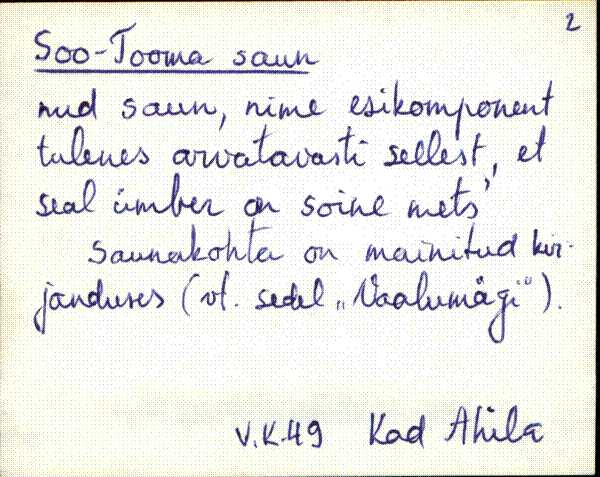 2
Soo-Tooma saun
nud saun, nime esikomponent
tulenes arvatavasti sellest, et
seal ümber on soine mets
Saunakohta on mainitud kir-
janduses (vt. sedel „Vaalumägi").
V.K.49 Kad Ahila